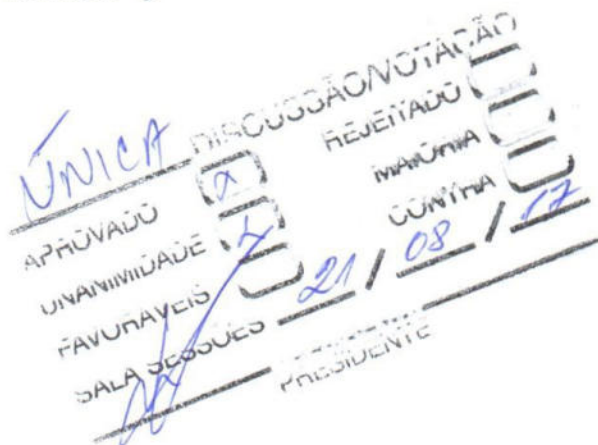 ÚNICA DISCUSSÃO/VOTAÇÃO
APROVADO x REJEITADO
UNANIMIDADE x MAIORIA
FAVORÁVEIS CONTRA
SALA SESSÕES 21 / 08 / 17
PRESIDENTE